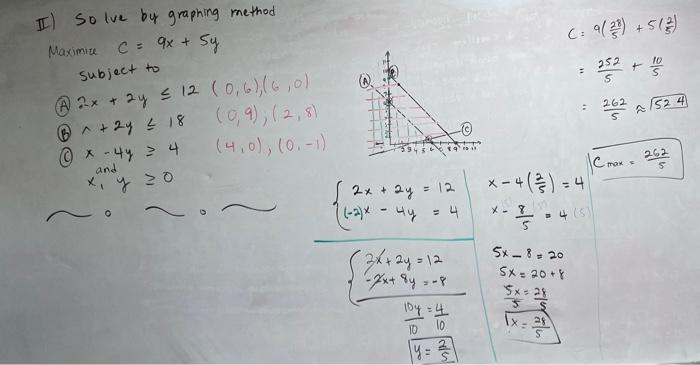 II) Solve by graphing method
Maximize C = 9x + 5y
subject to
Ⓐ 2x + 2y ≤ 12 (0,6),(6,0)
Ⓑ x + 2y ≤ 18 (0,9),(2,8)
Ⓒ x - 4y ≥ 4 (4,0),(0,-1)
and
x, y ≥ 0
Ⓐ
Ⓑ
Ⓒ
{ 2x + 2y = 12
(-2)x - 4y = 4
{ 2x + 2y = 12
-2x + 8y = -8
10y = 4
10 10
y = 2/5
x - 4(2/5) = 4
(5)x - 8/5 (5) = 4 (5)
5x - 8 = 20
5x = 20 + 8
5x = 28
5 5
x = 28/5
C = 9(28/5) + 5(2/5)
= 252/5 + 10/5
= 262/5 ≈ 52.4
Cmax = 262/5